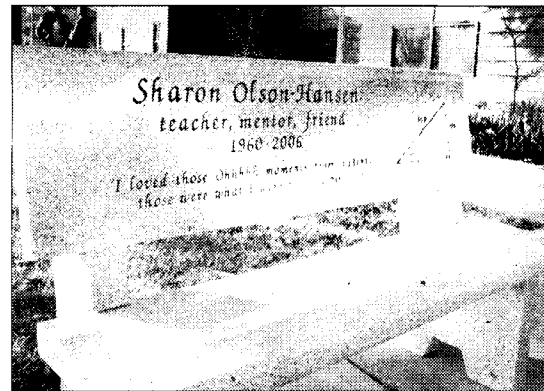 Sharon Olson-Hansen
teacher, mentor, friend
1960-2006
"I loved those Ohhhhh moments
those were what I